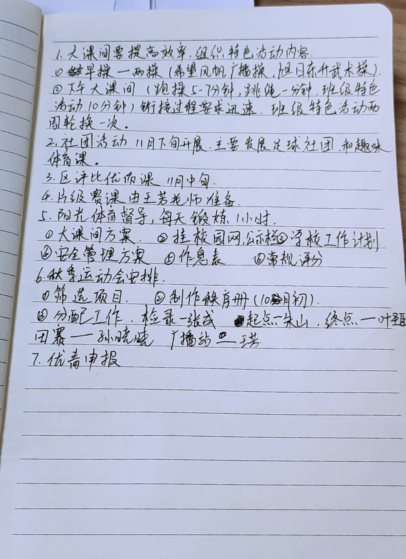 1.大课间要提高效率,组织特色活动内容.
①做早操一两操(希望风帆广播操,旭日东升武术操).
②下午大课间(跑操5-7分钟,跳绳一分钟,班级特色
活动10分钟)衔接过程要求迅速.班级特色活动两
周轮换一次。
2.社团活动11月下旬开展.主要发展足球社团和趣味
体育课。
3.区评比优质课 11月中旬.
4.片级赛课由王若光师准备.
5.阳光体育督导,每天锻炼1小时.
①大课间方案. ②挂校园网,公示栏③学校工作计划
④安全管理方案 ⑤作息表 ⑥常规评分
6.秋季运动会安排.
①筛选项目. ②制作秩序册(10月初).
③分配工作.检录一张成 起点一朱山.终点一叶
田赛——孙晓晓 广播站一琪
7.优青申报